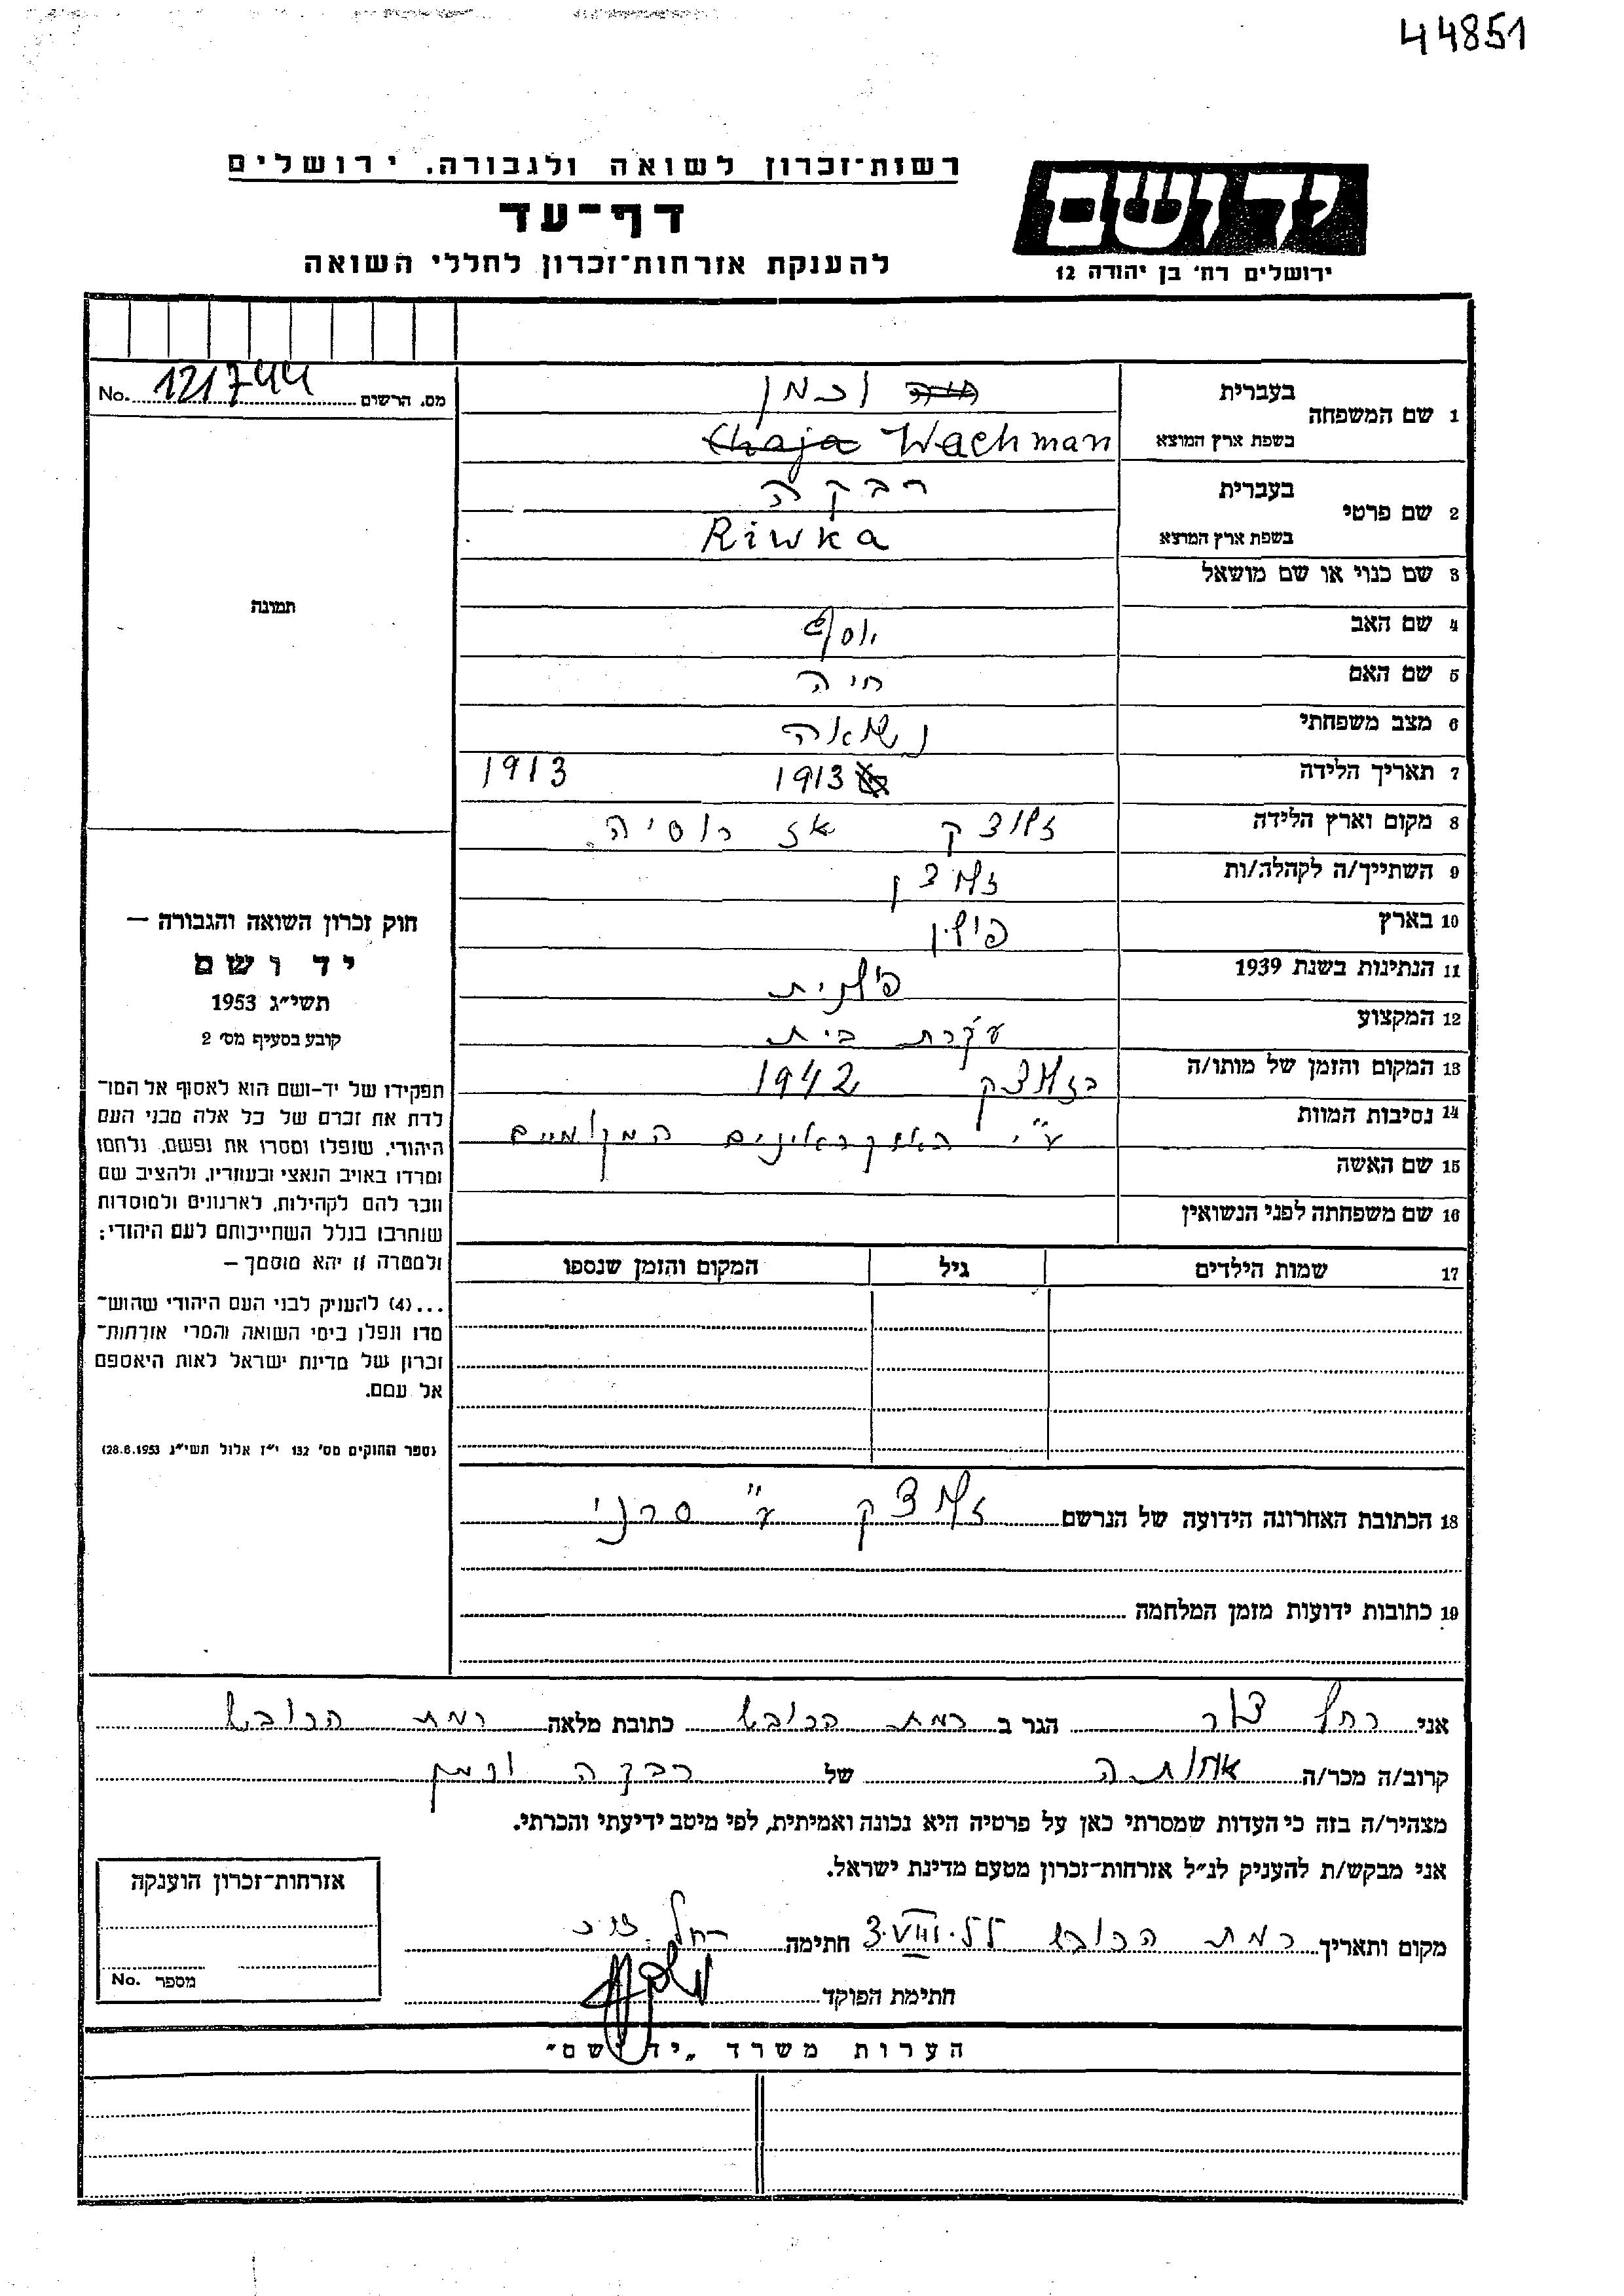 44851
רשות-זכרון לשואה ולגבורה, ירושלים
דף-עד
להענקת אזרחות-זכרון לחללי השואה
יד ושם
ירושלים רח' בן יהודה 12
מס. הרשום 121744 No.
1 שם המשפחה
בעברית וכמן
בשפת ארץ המוצא Wachman
2 שם פרטי
בעברית רבקה
בשפת ארץ המוצא Riwka
3 שם כנוי או שם מושאל
4 שם האב יוסף
5 שם האם חיה
6 מצב משפחתי נשואה
7 תאריך הלידה 1913 1913
8 מקום וארץ הלידה אז רוסיה
9 השתייך/ה לקהלה/ות
10 בארץ פולין
11 הנתינות בשנת 1939 פולנית
12 המקצוע עקרת בית
13 המקום והזמן של מותו/ה 1942
14 נסיבות המוות ע"י האוקראינים המקומיים
15 שם האשה
16 שם משפחתה לפני הנשואין
17 שמות הילדים גיל המקום והזמן שנספו
תמונה
חוק זכרון השואה והגבורה –
יד ושם
תשי"ג 1953
קובע בסעיף מס' 2
תפקידו של יד-ושם הוא לאסוף אל המו-
לדת את זכרם של כל אלה מבני העם
היהודי, שנפלו ומסרו את נפשם, נלחמו
ומרדו באויב הנאצי ובעוזריו, ולהציב שם
וזכר להם לקהילות, לארגונים ולמוסדות
שנחרבו בגלל השתייכותם לעם היהודי;
ולמטרה זו יהא מוסמך –
...(4) להעניק לבני העם היהודי שהוש-
מדו ונפלו בימי השואה והמרי אזרחות-
זכרון של מדינת ישראל לאות היאספם
אל עמם.
(ספר החוקים מס' 132 י"ז אלול תשי"ג 28.8.1953)
18 הכתובת האחרונה הידועה של הנרשם ע"י סרני
19 כתובות ידועות מזמן המלחמה
אני רחל הגר ב רמת הכובש כתובת מלאה רמת הכובש
קרוב/ה מכר/ה אחותה של רבקה וכמן
מצהיר/ה בזה כי העדות שמסרתי כאן על פרטיה היא נכונה ואמיתית, לפי מיטב ידיעתי והכרתי.
אני מבקש/ת להעניק לנ"ל אזרחות-זכרון מטעם מדינת ישראל.
מקום ותאריך רמת הכובש 3.VIII.55 חתימה רחל
חתימת הפוקד
אזרחות-זכרון הוענקה
מספר No.
הערות משרד "יד ושם"